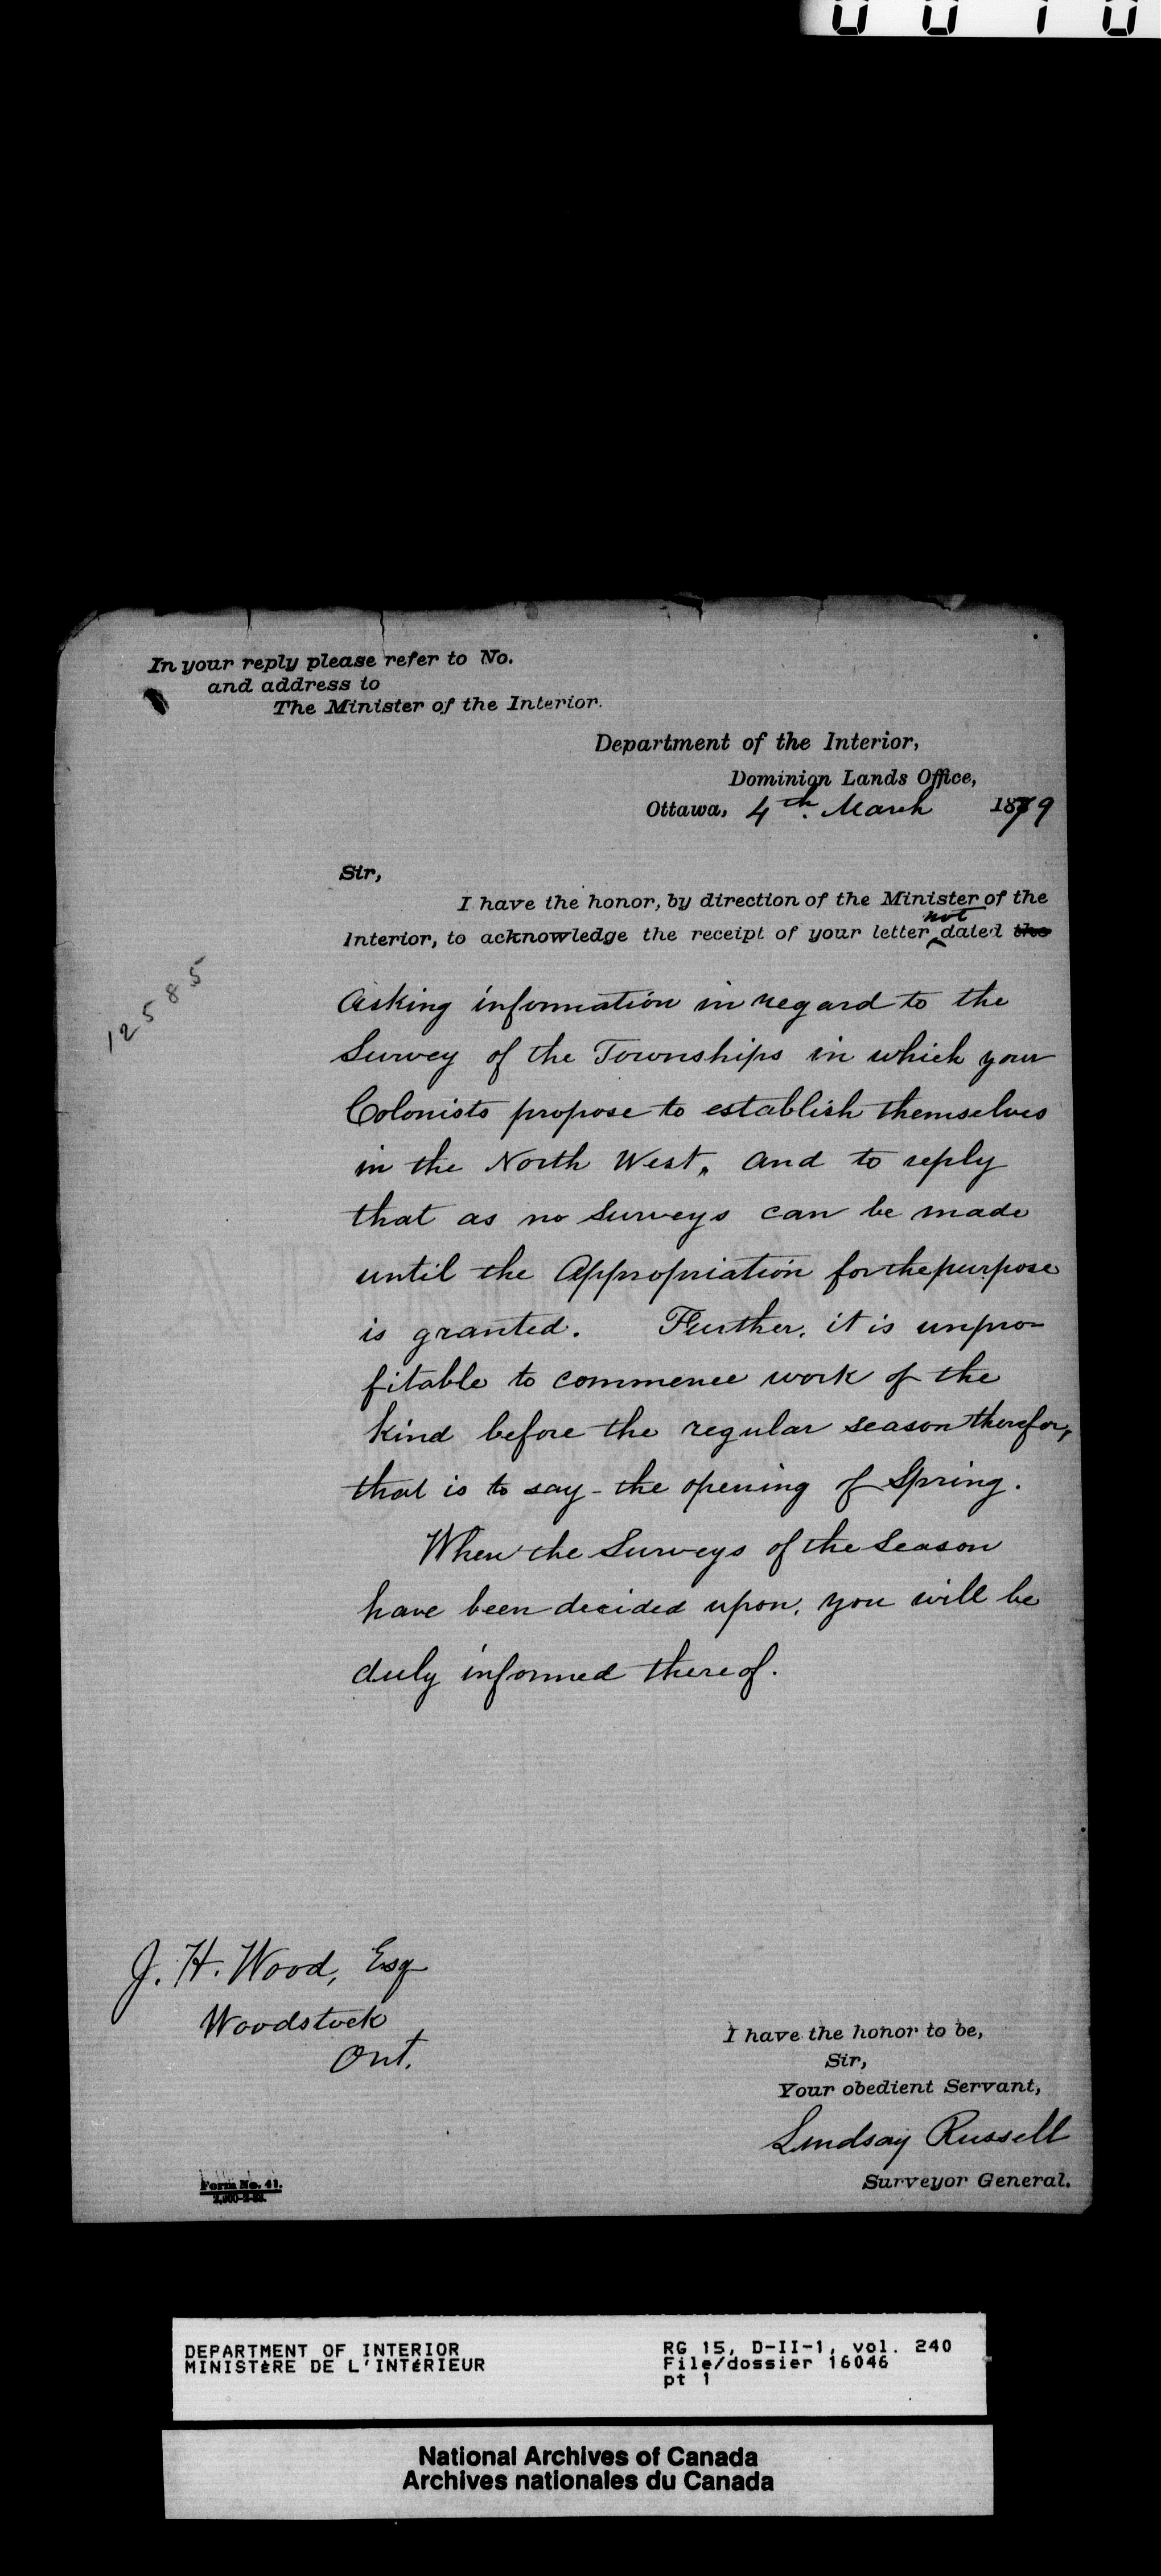 0010
In your reply please refer to No.
and address to
The Minister of the Interior.
Department of the Interior,
Dominion Lands Office,
Ottawa, 4th. March 1879
Sir,
I have the honor, by direction of the Minister of the
not
Interior, to acknowledge the receipt of your letter dated the
12585
Asking information in regard to the
Survey of the Townships in which your
Colonists propose to establish themselves
in the North West, and to reply
that as no Surveys can be made
until the Appropriation for the purpose
is granted. Further, it is unpro=
fitable to commence work of the
kind before the regular season therefor,
that is to say - the opening of Spring.
When the Surveys of the Season
have been decided upon, you will be
duly informed thereof.
J. H. Wood, Esq
Woodstock
Ont.
I have the honor to be,
Sir,
Your obedient Servant,
Lindsay Russell
Surveyor General.
Form No. 41.
DEPARTMENT OF INTERIOR
MINISTÈRE DE L'INTÉRIEUR
RG 15, D-II-1, vol. 240
File/dossier 16046
pt 1
National Archives of Canada
Archives nationales du Canada